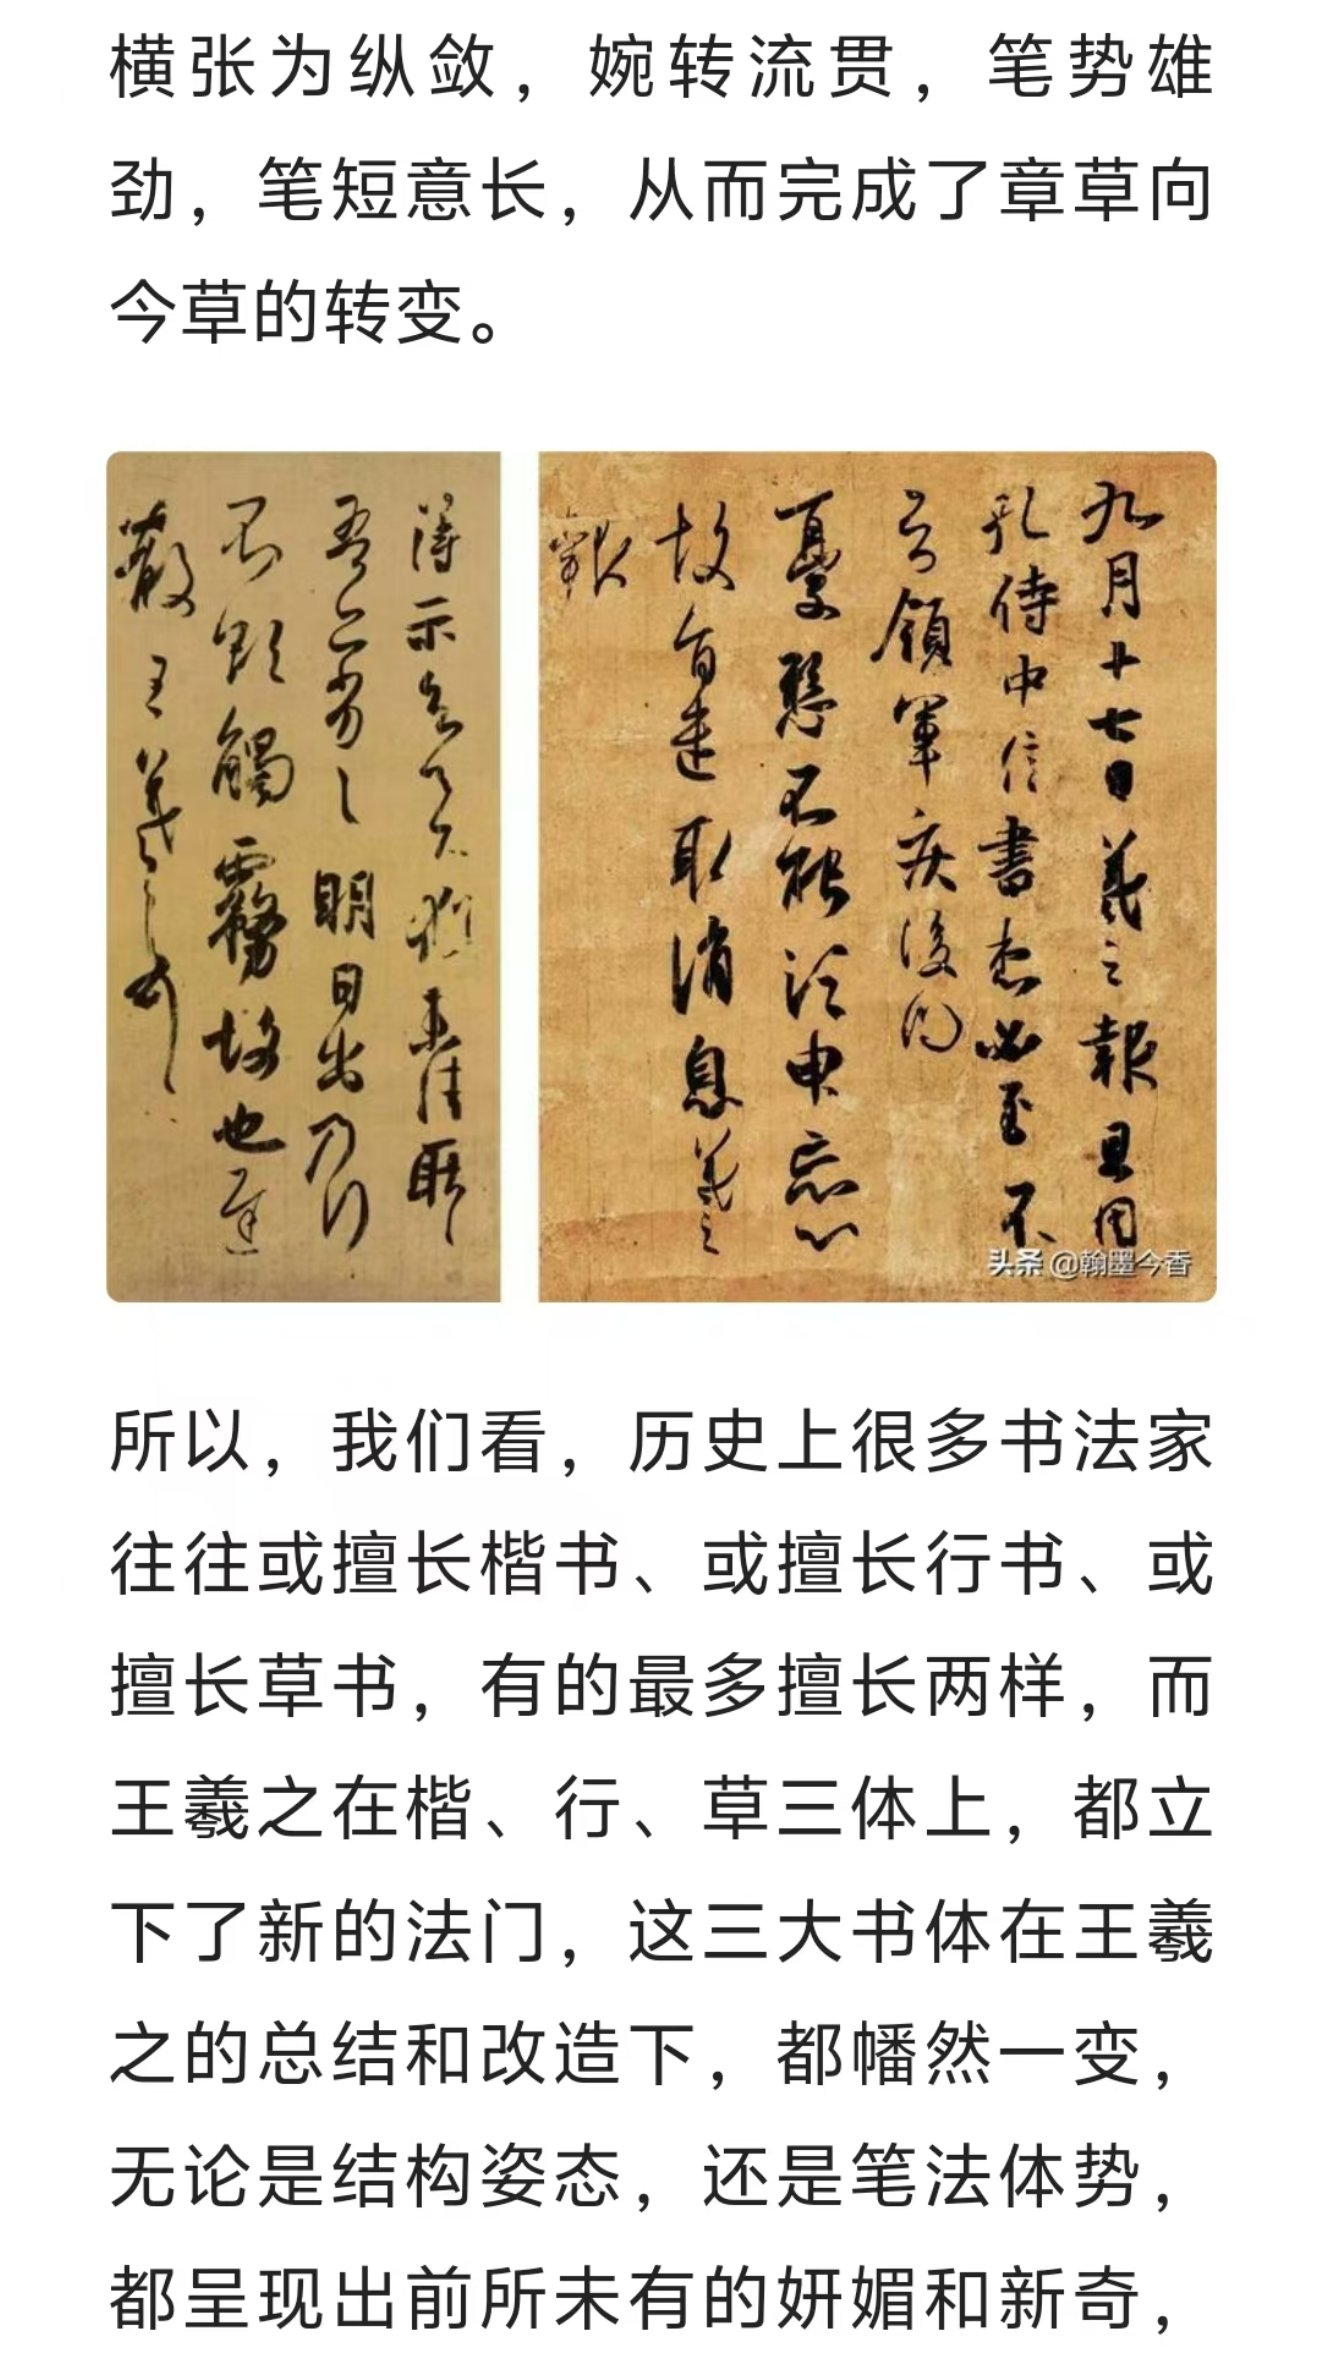 横张为纵敛，婉转流贯，笔势雄
劲，笔短意长，从而完成了章草向
今草的转变。
九月十七日羲之報且因
孔侍中信書想必至不
知領軍疾後問
憂懸不能須臾忘心
故旨遣取消息羲之
報
得示知足下猶未佳耿耿
吾亦劣劣明日出乃行
不欲觸霧故也遲
散王羲之頓首
头条 @翰墨今香
所以，我们看，历史上很多书法家
往往或擅长楷书、或擅长行书、或
擅长草书，有的最多擅长两样，而
王羲之在楷、行、草三体上，都立
下了新的法门，这三大书体在王羲
之的总结和改造下，都幡然一变，
无论是结构姿态，还是笔法体势，
都呈现出前所未有的妍媚和新奇，